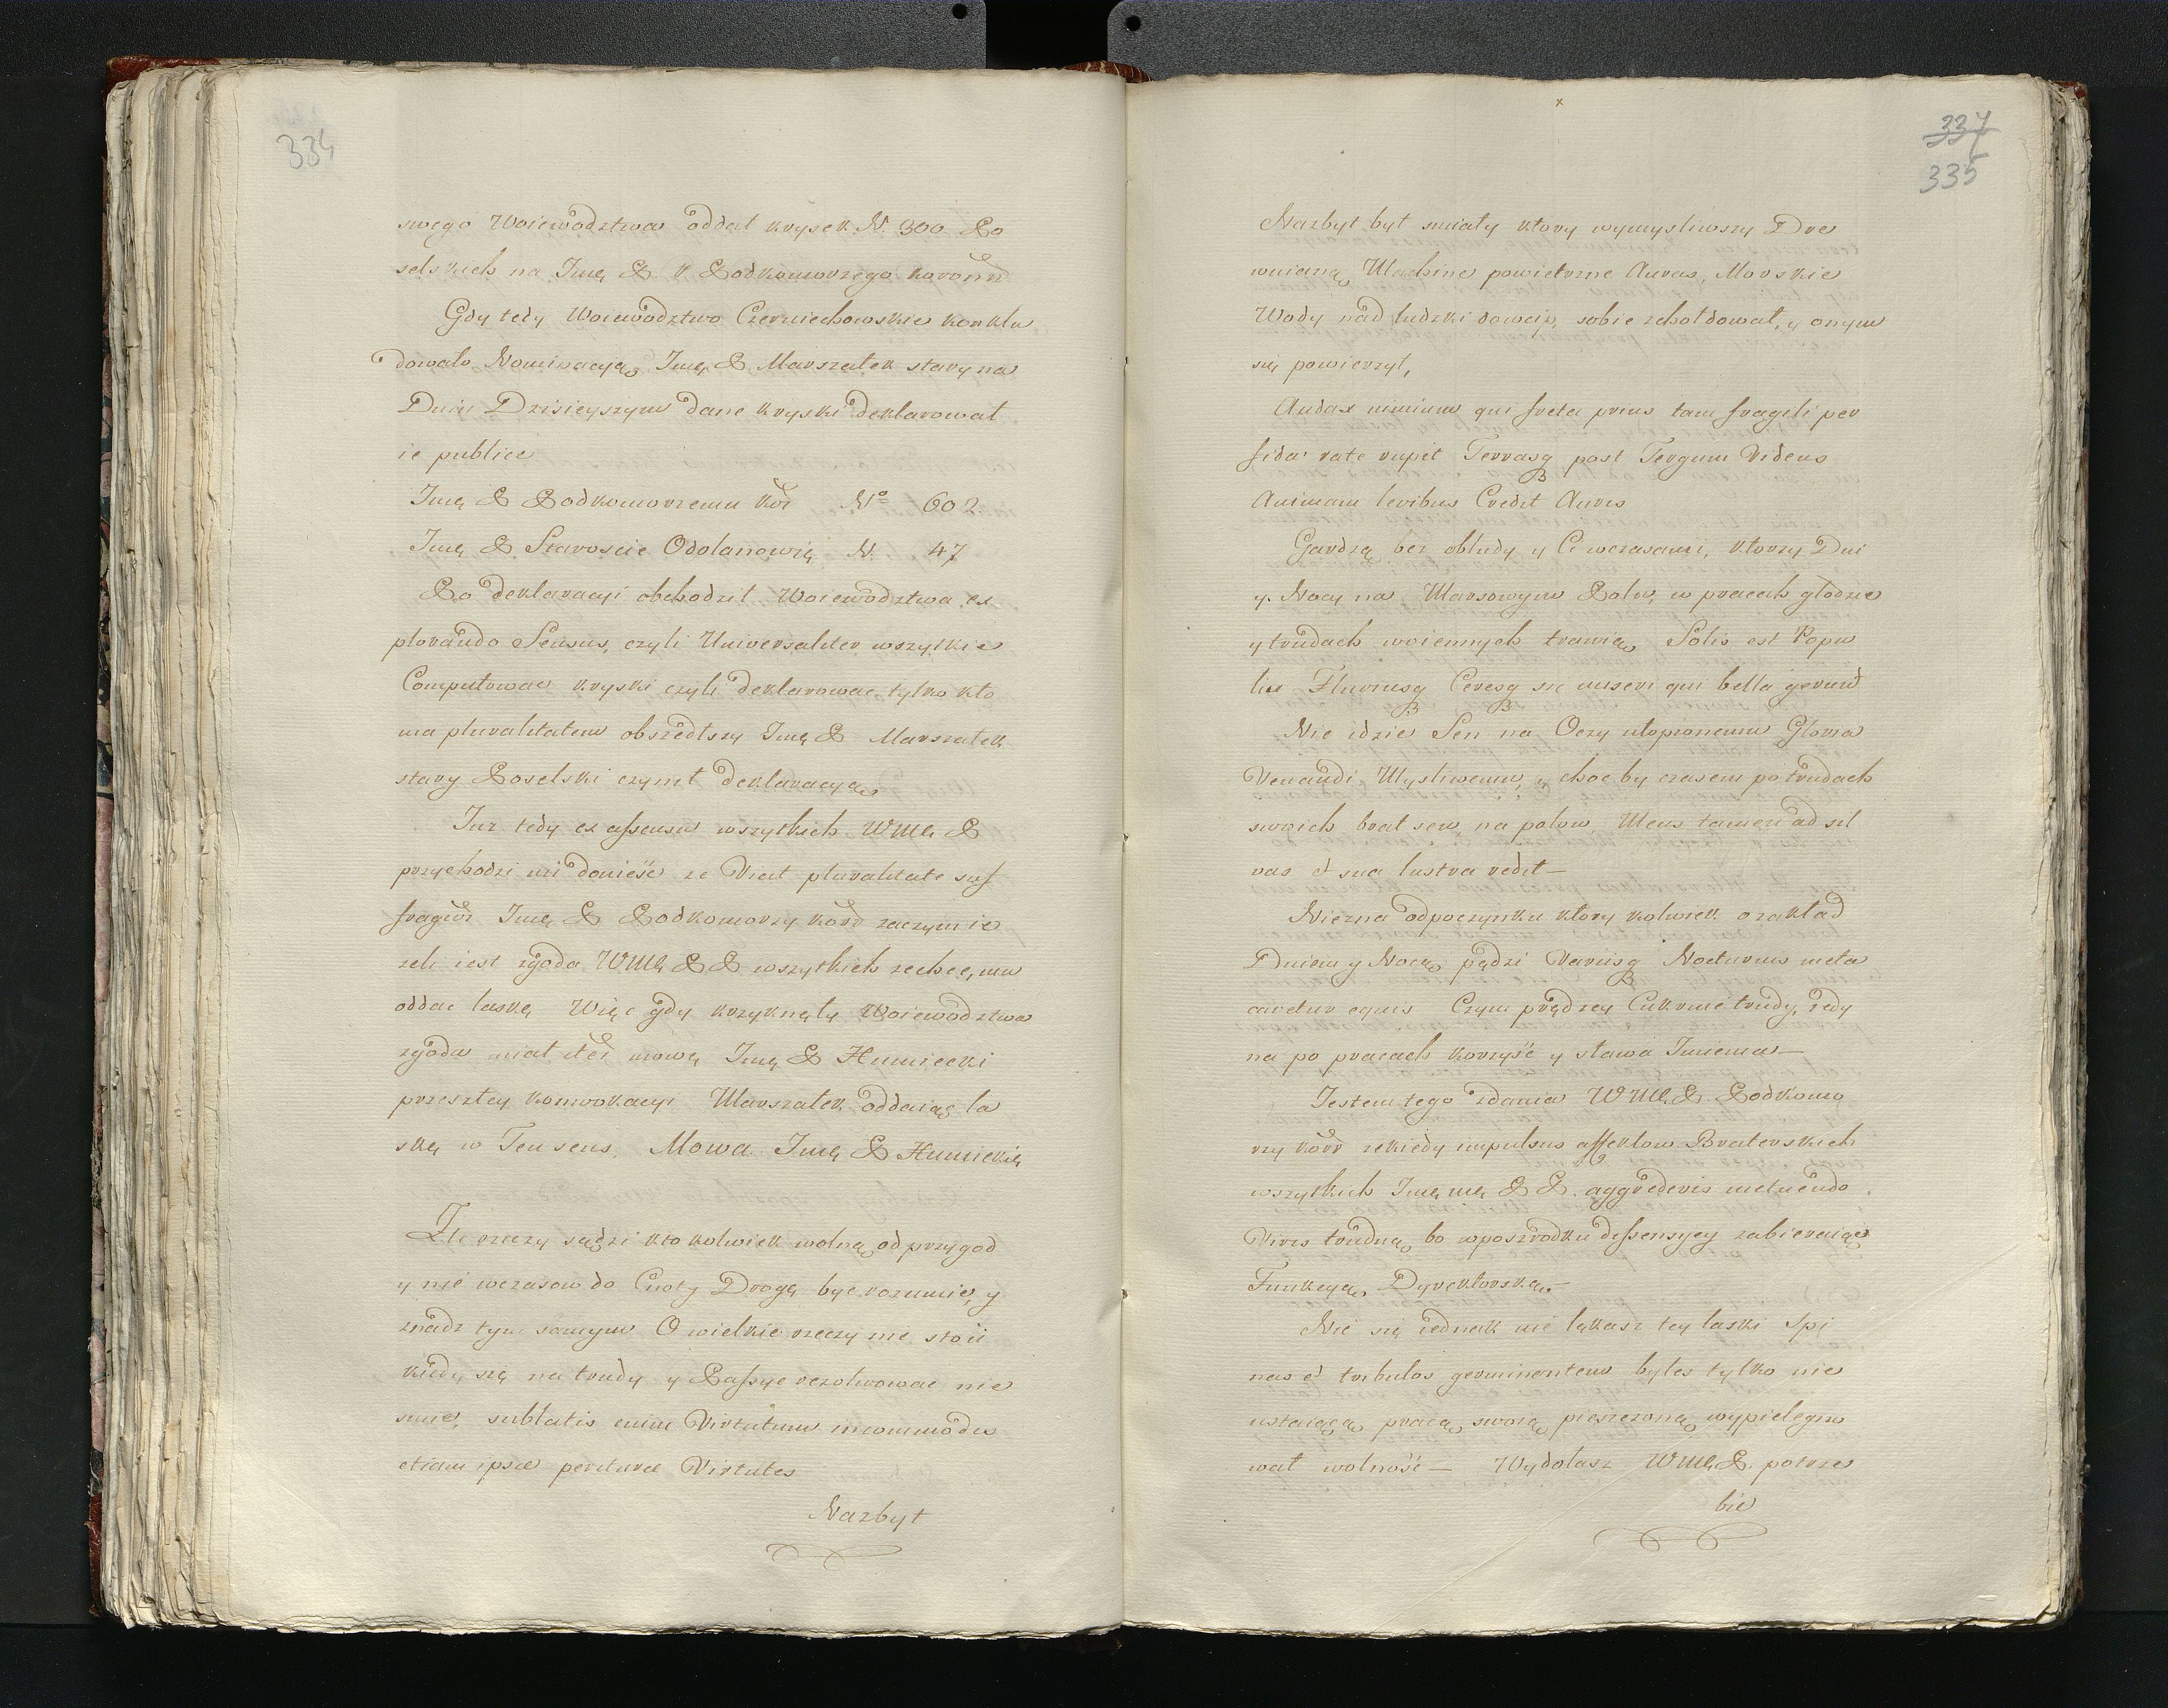 334
swego Woiewodztwa oddał krysek N. 300 Po
selskich na Jmę P. k Podkomorzego koronn
Gdy tedy Woiewodztwo Czerniechowskie konklu
dowało Nominacyą, Jmę P Marszałek stary na
Dniu Dzisieyszym dane kryski deklarował
ie publice
Jmę P Podkomorzemu kor No 602
Jmę P. Staroscie Odolanowię N. 47
Po deklaracyi obchodził Woiewodztwa ex
plorando Sensus, czyli Universaliter wszytkie
Computowac kryski czyli deklarowac tylko kto
ma pluralitatem obszedłszy Jmę P Marszałek
stary Poselski czynił deklaracyą
Juz tedy ex assensu wszytkich WMę P
przychodzi mi donieść ze Vicit pluralitate suf
fragior Jmę P Podkomorzy korr zaczym ie
zeli iest zgoda WMę P P wszytkich zechcę, mu
oddac laskę Więc gdy krzyknęły Woiewodztwa
zgoda miał też mowę Jmę P Humiecki
przeszłey konwokacyi Marszałek oddaiąc la
skę w Ten sens, Mowa Jmę P Humiekię
Źle rzeczy sądzi kto kolwiek wolną od przygod
y nie wczasow do Cnoty Drogę byc rozumie, y
znadz tym samym O wielkie rzeczy nie stoii
kiedy się na trudy y Passye rezolwowac nie
smie, sublatis enim Virtutum incommodis
etiam ipsæ perituræ Virtutes
Nazbyt
337
335
Nazbyt był smiały ktory wymysliwszy Dre
wnianą Machine powietrzne Auras, Morskie
Wody nad ludzki dowcip, sobie zchołdował, y onym
się powierzył,
Audax nimium qui freta prius tam fragili per
fida rate rupit Terrasq post Tergum Videns
Animam levibus Credit Auris
Gardzą bez obłudy y Ci wczasami, ktorzy Dni
y Nocy na Marsowym Polu, w pracach głodzie
y trudach woiennych trawią, Satis est Popu
lis Fluviusq Ceresq sic miseri qui bella gerunt
Nie idzie Sen na Oczy utopionemu Gloria
Venandi Mysliwemu, y choc by czasem po trudach
swoich brał sen na połow Mens tamen ad sil
vas et sua lustra redit —
Niezna odpoczynku ktory kolwiek o zakład
Dniem y Nocą pędzi Variisq Nocturnis meta
curetur equis Czym prędzey Cukruie trudy, iedy
na po pracach korzyść y sława Imienia —
Jestem tego zdania WMę P. Podkomo
rzy korr zekiedy impulsus affektow Braterskich
wszytkich Jmę mę P P. aggrederis metuendo
Viris trudną bo wposzrodku dissensyey zabieraiąc
Funkcyą Dyrektorską —
Nie się iednak nie lękasz tey laski Spi
nas et tribulos germinantem byles tylko nie
ustaiącą pracą swoią pieszczoną wypielegno
wał wolność — Wydołasz WMę P. potrze
bie